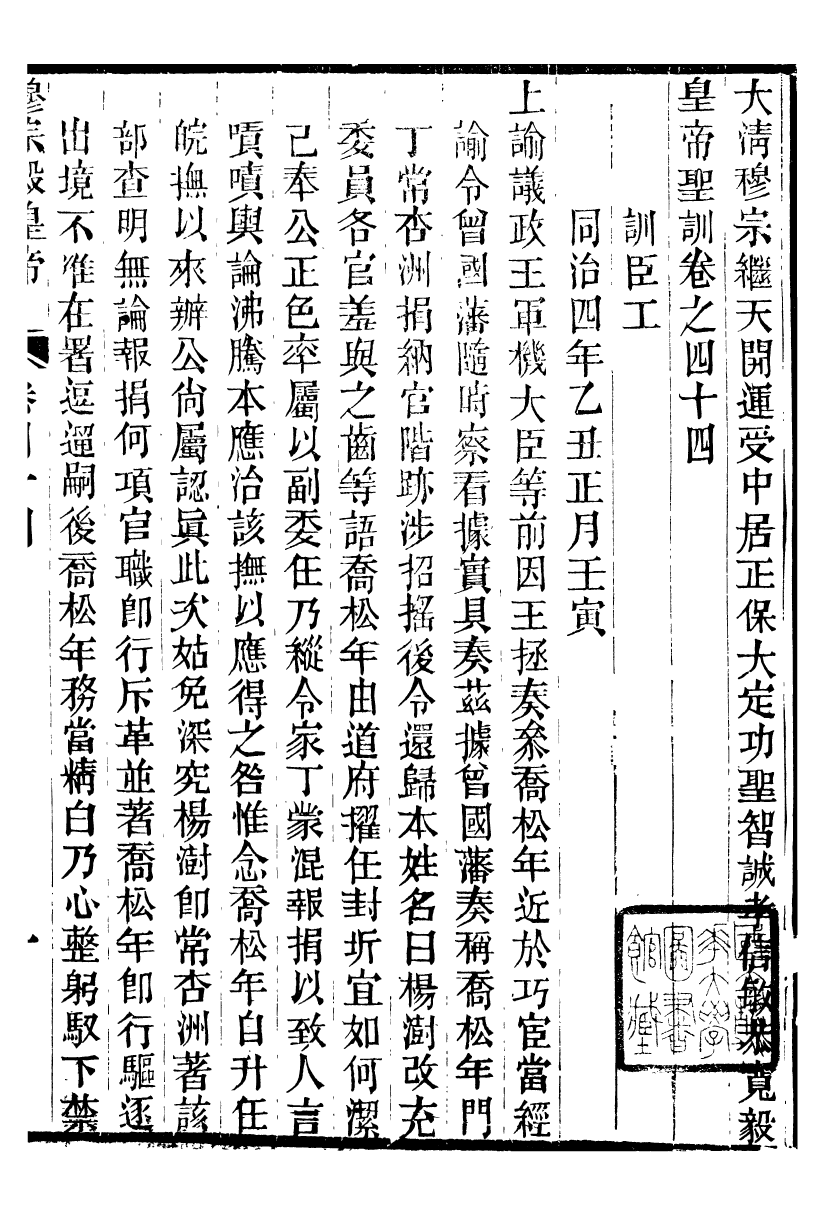 大清穆宗繼天開運受中居正保大定功聖智誠孝信敏恭寬毅
皇帝聖訓卷之四十四
訓臣工
同治四年乙丑正月壬寅
上諭議政王軍機大臣等前因王拯奏叅喬松年近於巧宦當經
諭令曾國藩隨時察看據實具奏茲據曾國藩奏稱喬松年門
丁常杏洲捐納官階跡涉招搖後令還歸本姓名曰楊澍改充
委員各官羞與之齒等語喬松年由道府擢任封圻宜如何潔
己奉公正色率屬以副委任乃縱令家丁蒙混報捐以致人言
嘖嘖輿論沸騰本應治該撫以應得之咎惟念喬松年自升任
皖撫以來辦公尙屬認眞此次姑免深究楊澍卽常杏洲著該
部查明無論報捐何項官職卽行斥革並著喬松年卽行驅逐
出境不准在署逗遛嗣後喬松年務當精白乃心整躬馭下禁
穆宗毅皇帝 卷四十四 一
圖書館藏